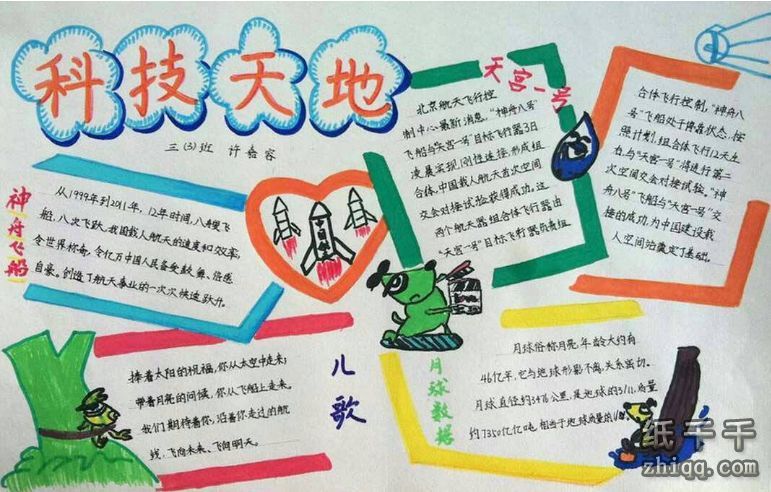 科技天地
三(3)班 许嘉容
神舟飞船
从1999年到2011年，12年时间，八艘飞
船，八次飞跃，我国载人航天的速度和效率，
令世界称奇，令亿万中国人民备受鼓舞、倍感
自豪。创造了航天事业的一次次快速跃升。
天宫一号
北京航天飞行控
制中心最新消息，“神舟八号”
飞船与“天宫一号”目标飞行器3日
凌晨实现刚性连接，形成组
合体，中国载人航天首次空间
交会对接试验获得成功。这
两个航天器组合体飞行器由
“天宫一号”目标飞行器负责组
合体飞行控制，“神舟八
号”飞船处于停靠状态，按
照计划，组合体飞行12天左
右，与“天宫一号”将进行第二
次空间交会对接试验。“神
舟八号”飞船与“天宫一号”交
接的成功，为中国建设载
人空间站奠定了基础。
儿歌
捧着太阳的祝福，你从太空中走来；
带着月亮的问候，你从飞船上走来。
我们期待着你，沿着你走过的航
线，飞向未来、飞向明天。
月球数据
月球俗称月亮，年龄大约有
46亿年，它与地球形影不离，关系密切。
月球直径约3476公里，是地球的3/11，质量
约7350亿亿吨，相当于地球质量的1/81。
纸千千
zhiqq.com